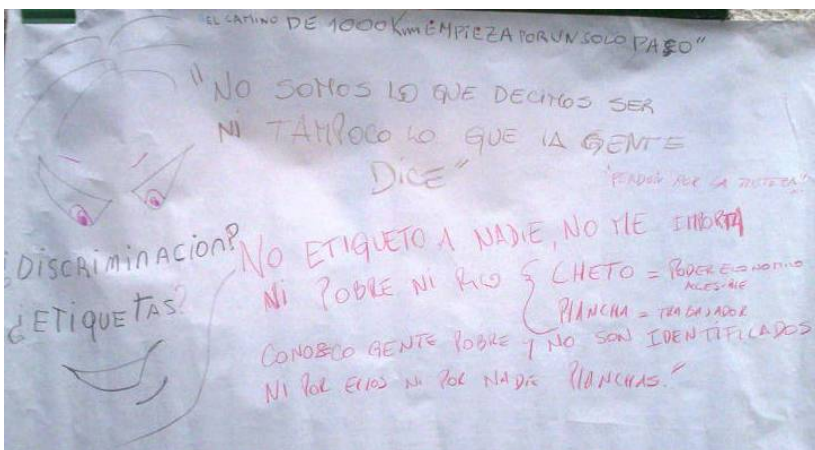 "EL CAMINO DE 1000 Km EMPIEZA POR UN SOLO PASO"
"NO SOMOS LO QUE DECIMOS SER
NI TAMPOCO LO QUE LA GENTE
DICE"
"PERDON POR LA
¿DISCRIMINACION?
¿ETIQUETAS?
NO ETIQUETO A NADIE, NO ME IMPORTA
NI POBRE NI RICO { CHETO = PODER ECONOMICO
ACCESIBLE
PLANCHA = TRABAJADOR
CONOSCO GENTE POBRE Y NO SON IDENTIFICADOS
NI POR ELLOS NI POR NADIE PLANCHAS."